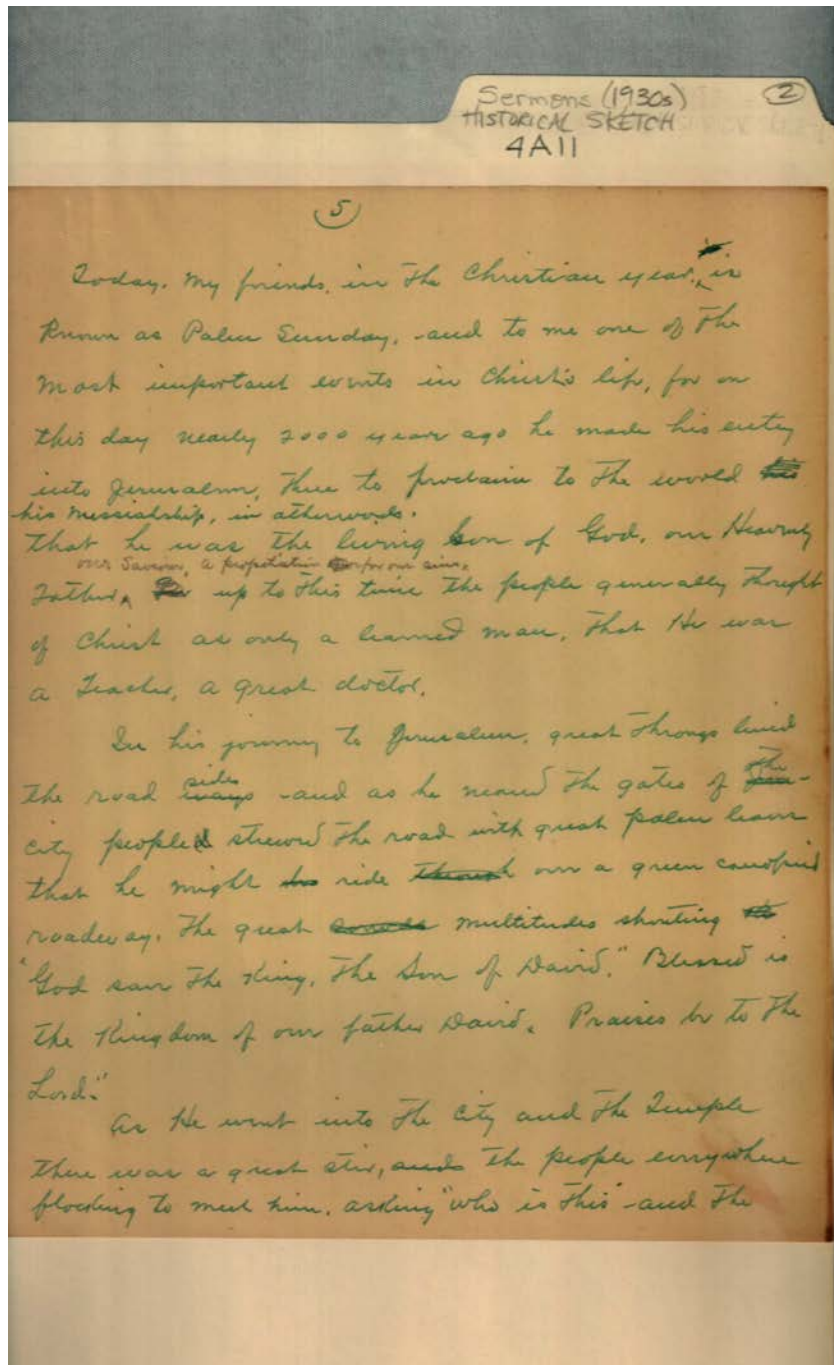 Sermons (1930s) 2
HISTORICAL SKETCH
4A11
5
Today, my friends, in the Christian year, is
known as Palm Sunday, and to me one of the
most important events in Christ's life, for on
this day nearly 2000 year ago he made his entry
into Jerusalem, there to proclaim to the world his
his Messiahship, in otherwords.
that he was the living Son of God, our Heavenly
our Saviour, a propitiation for our sins.
Father, up to this time the people generally thought
of Christ as only a learned man, that He was
a Teacher, a great doctor.
In his journey to Jerusalem, great throngs lined
sides the
the road ways and as he neared the gates of
city people strewed the road with great palm leaves
that he might ride through over a green canopied
roadway. The great crowds multitudes shouting
"God save the King, the Son of David." Blessed is
the Kingdom of our father David. Praises be to the
Lord."
As He went into the City and the Temple
there was a great stir, and the people everywhere
flocking to meet him, asking "who is this" and the